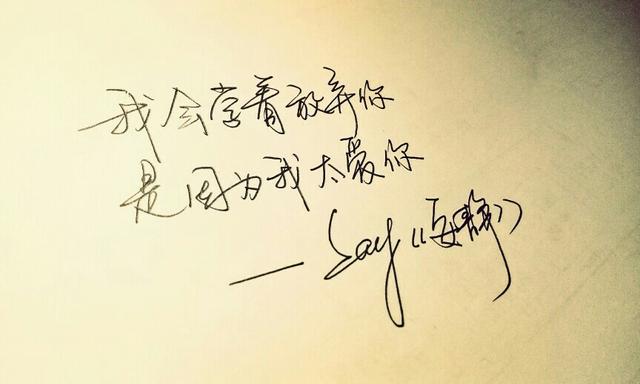 我会学着放弃你
是因为我太爱你
— Jay《安静》